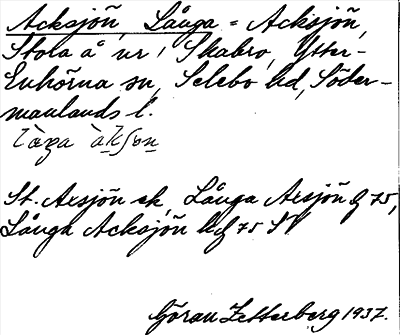 Acksjön, Långa = Acksjön,
Stola å nr 1, Skabro, Ytter-
Enhörna sn, Selebo hd, Söder-
manlands l.
St. Axsjön ek, Långa Axsjön G 75,
Långa Acksjön hG 75 SV
Göran Zetterberg 1937.